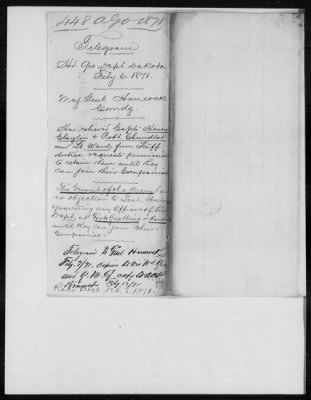 448 AGO 1871
Telegram
Hd Qrs Dept Dakota
Feby 6. 1871.
Maj. Genl Hancock
Comdg.
Has relieved Capts Henry
Clayton & Robt Chandler
and Lt Ward from Staff
duties requests permission
to retain them until they
can join their Companies
The General of the Army has
no objection to Genl Hancock
quartering any Officers of his
Dept. at Fort Snelling or
until they can join their
Companies.
Telegram to Genl Hancock
Feby. 7/71. copies to
and Q. M. G.
Feby 7/71
1871